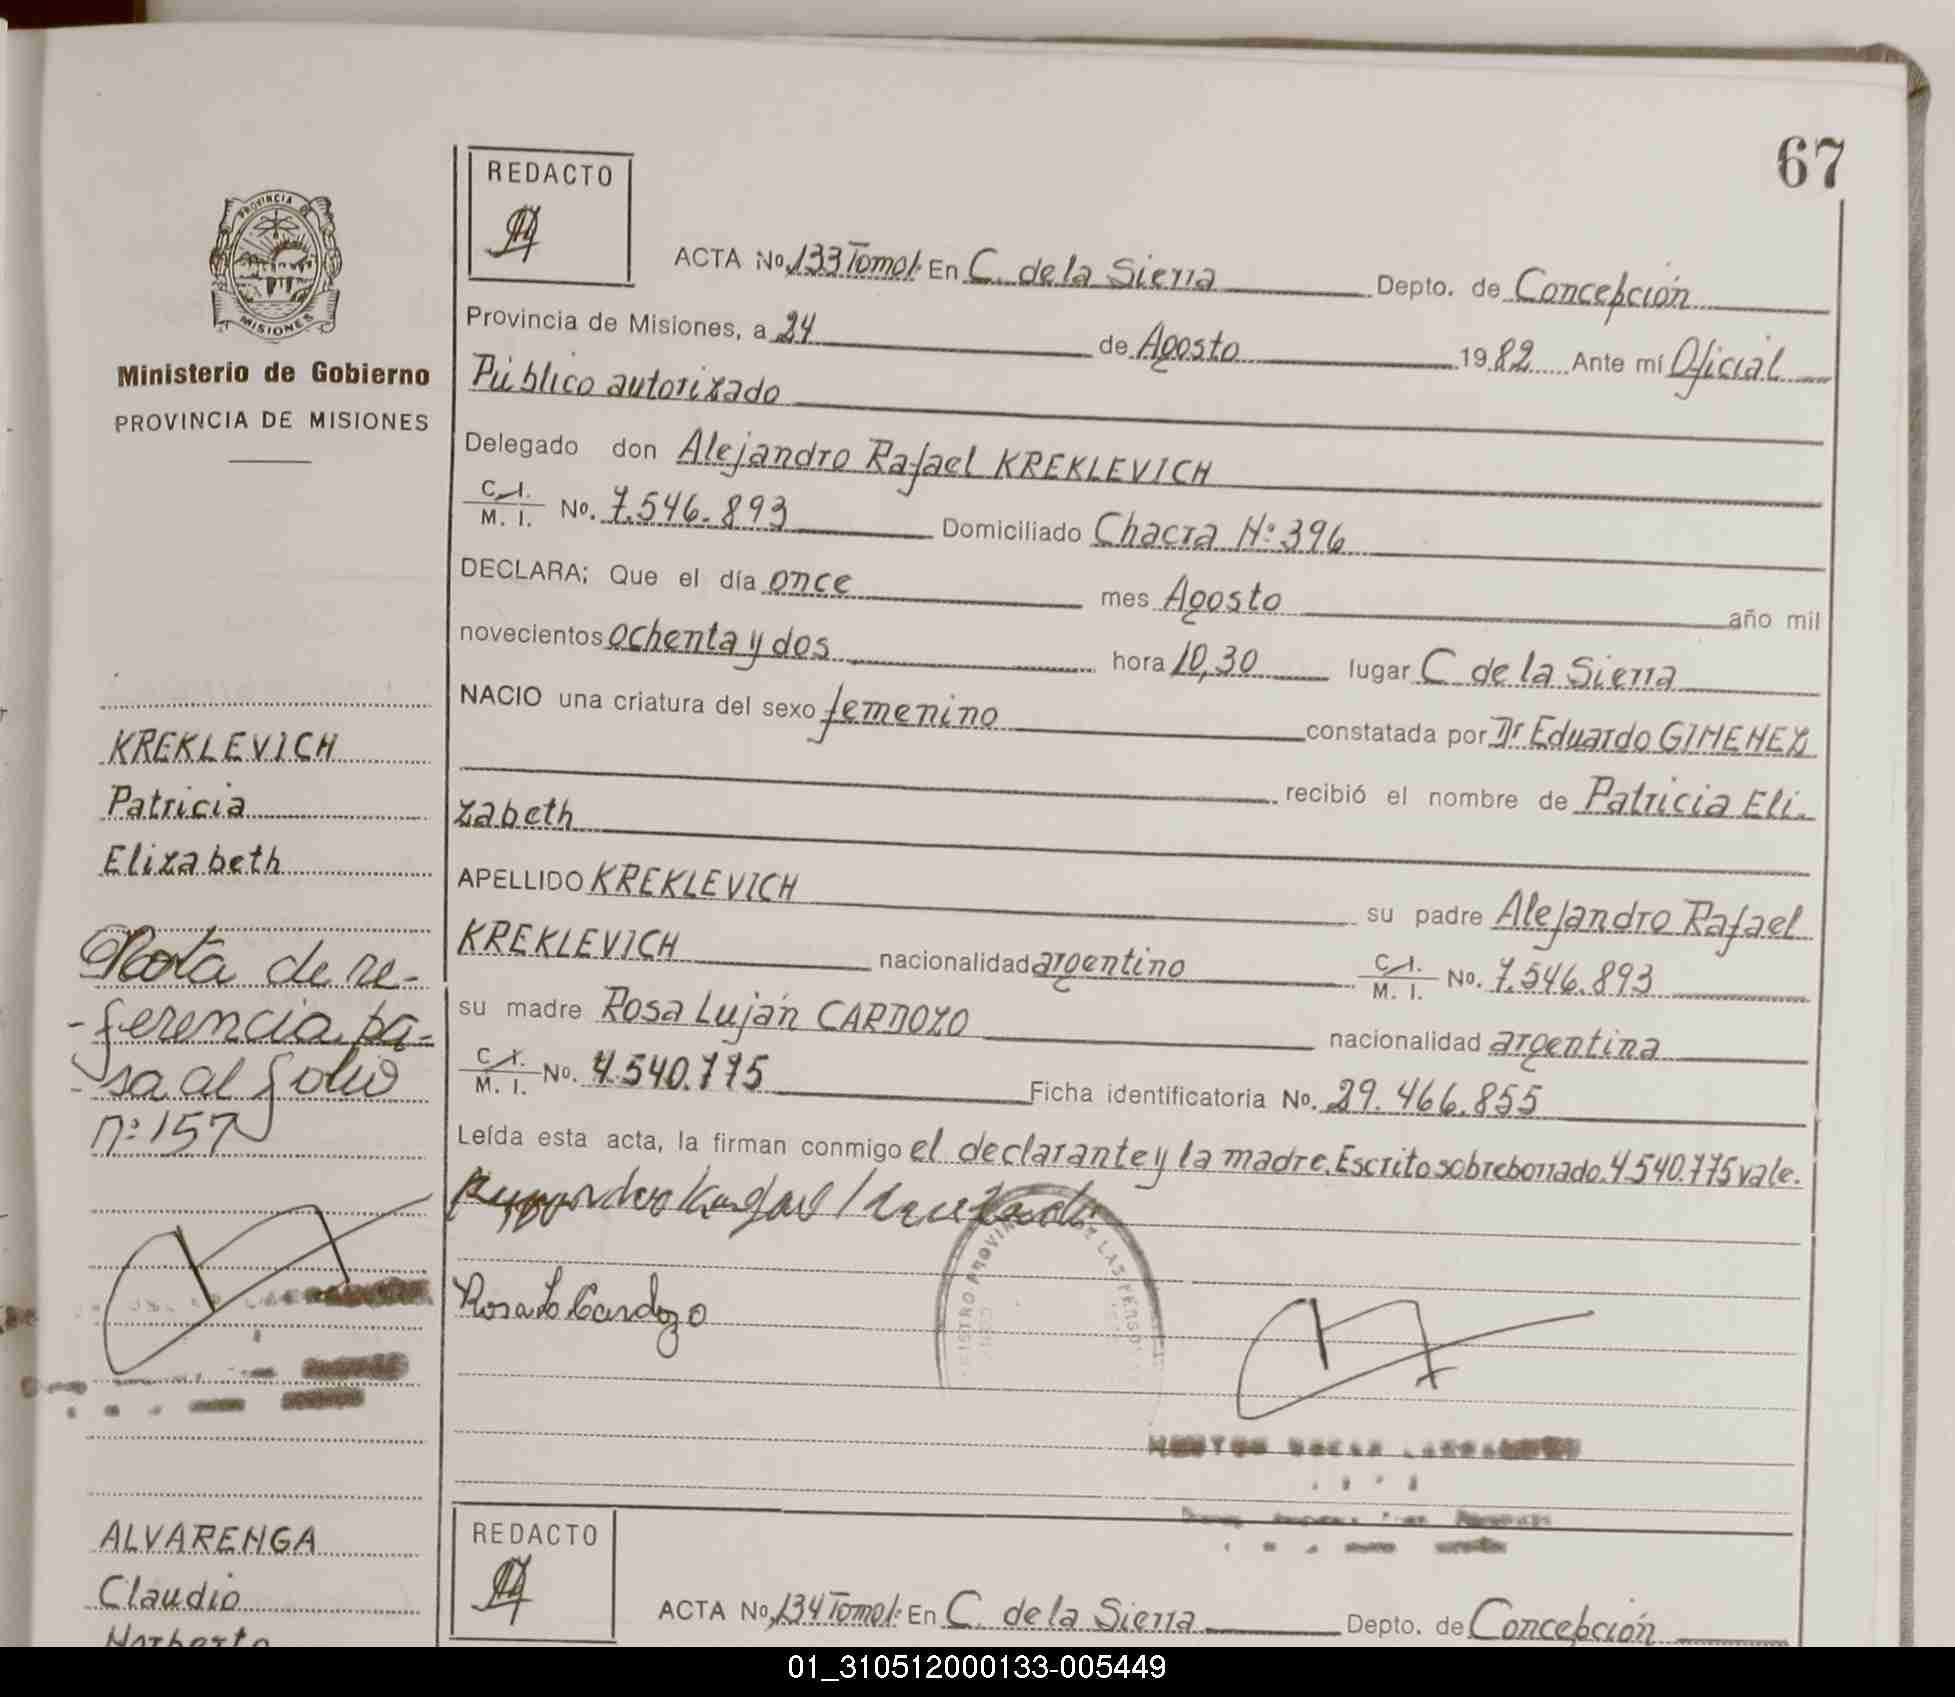 67
REDACTO
ACTA No. 133 Tomo 1: En C. de la Sierra Depto. de Concepción
PROVINCIA DE
MISIONES
Ministerio de Gobierno
PROVINCIA DE MISIONES
Provincia de Misiones, a 24 de Agosto 1982 Ante mí Oficial
Público autorizado
Delegado don Alejandro Rafael KREKLEVICH
C. I.
M. I. No. 7.546.893 Domiciliado Chacra Nº 396
DECLARA; Que el día once mes Agosto año mil
novecientos ochenta y dos hora 10,30 lugar C. de la Sierra
NACIO una criatura del sexo femenino constatada por Dr Eduardo GIMENEZ
recibió el nombre de Patricia Eli-
zabeth
APELLIDO KREKLEVICH su padre Alejandro Rafael
KREKLEVICH nacionalidad argentino C. I.
M. I. No. 7.546.893
su madre Rosa Luján CARDOZO nacionalidad argentina
C. I.
M. I. No. 4.540.775 Ficha identificatoria No. 29.466.855
Leída esta acta, la firman conmigo el declarante y la madre. Escrito sobreborrado. 4.540.775 vale.
Rosa L Cardozo
KREKLEVICH
Patricia
Elizabeth
Nota de re-
-ferencia pa-
-sa al folio
nº 157
REDACTO
ACTA No. 134 Tomo 1: En C. de la Sierra Depto. de Concepción
ALVARENGA
Claudio
Norberto
01_310512000133-005449